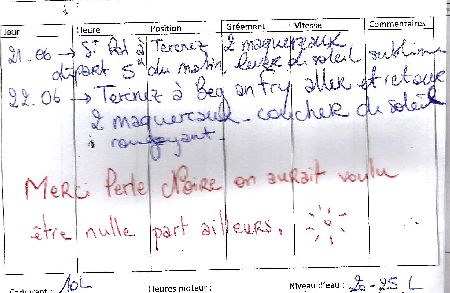 Jour Heure Position Gréement Vitesse Commentaires
21.06 → St Pol à Terenez 2 maquereaux
départ 5h du matin lever du soleil sublime
22.06 → Terenez à Beg an Fry aller et retour
2 maquereaux - coucher du soleil
rougeoyant -
Merci Perle Noire on aurait voulu
être nulle part ailleurs.
Carburant : 10L Heures moteur : Niveau d'eau : 20-25 L